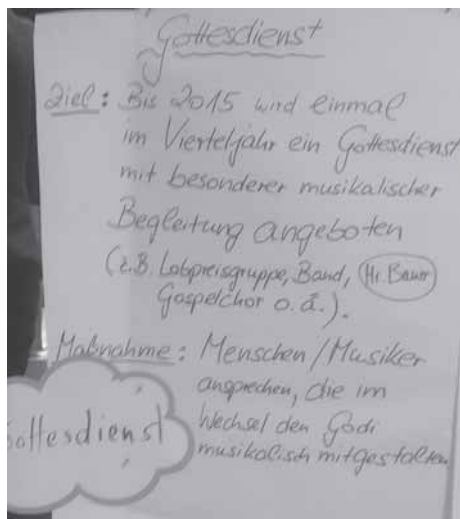 Gottesdienst
Ziel: Bis 2015 wird einmal
im Vierteljahr ein Gottesdienst
mit besonderer musikalischer
Begleitung angeboten
(z.B. Lobpreisgruppe, Band, Hr. Bauer
Gospelchor o.ä.).
Maßnahme: Menschen/Musiker
ansprechen, die im
Wechsel den Godi
musikalisch mitgestalten
Gottesdienst